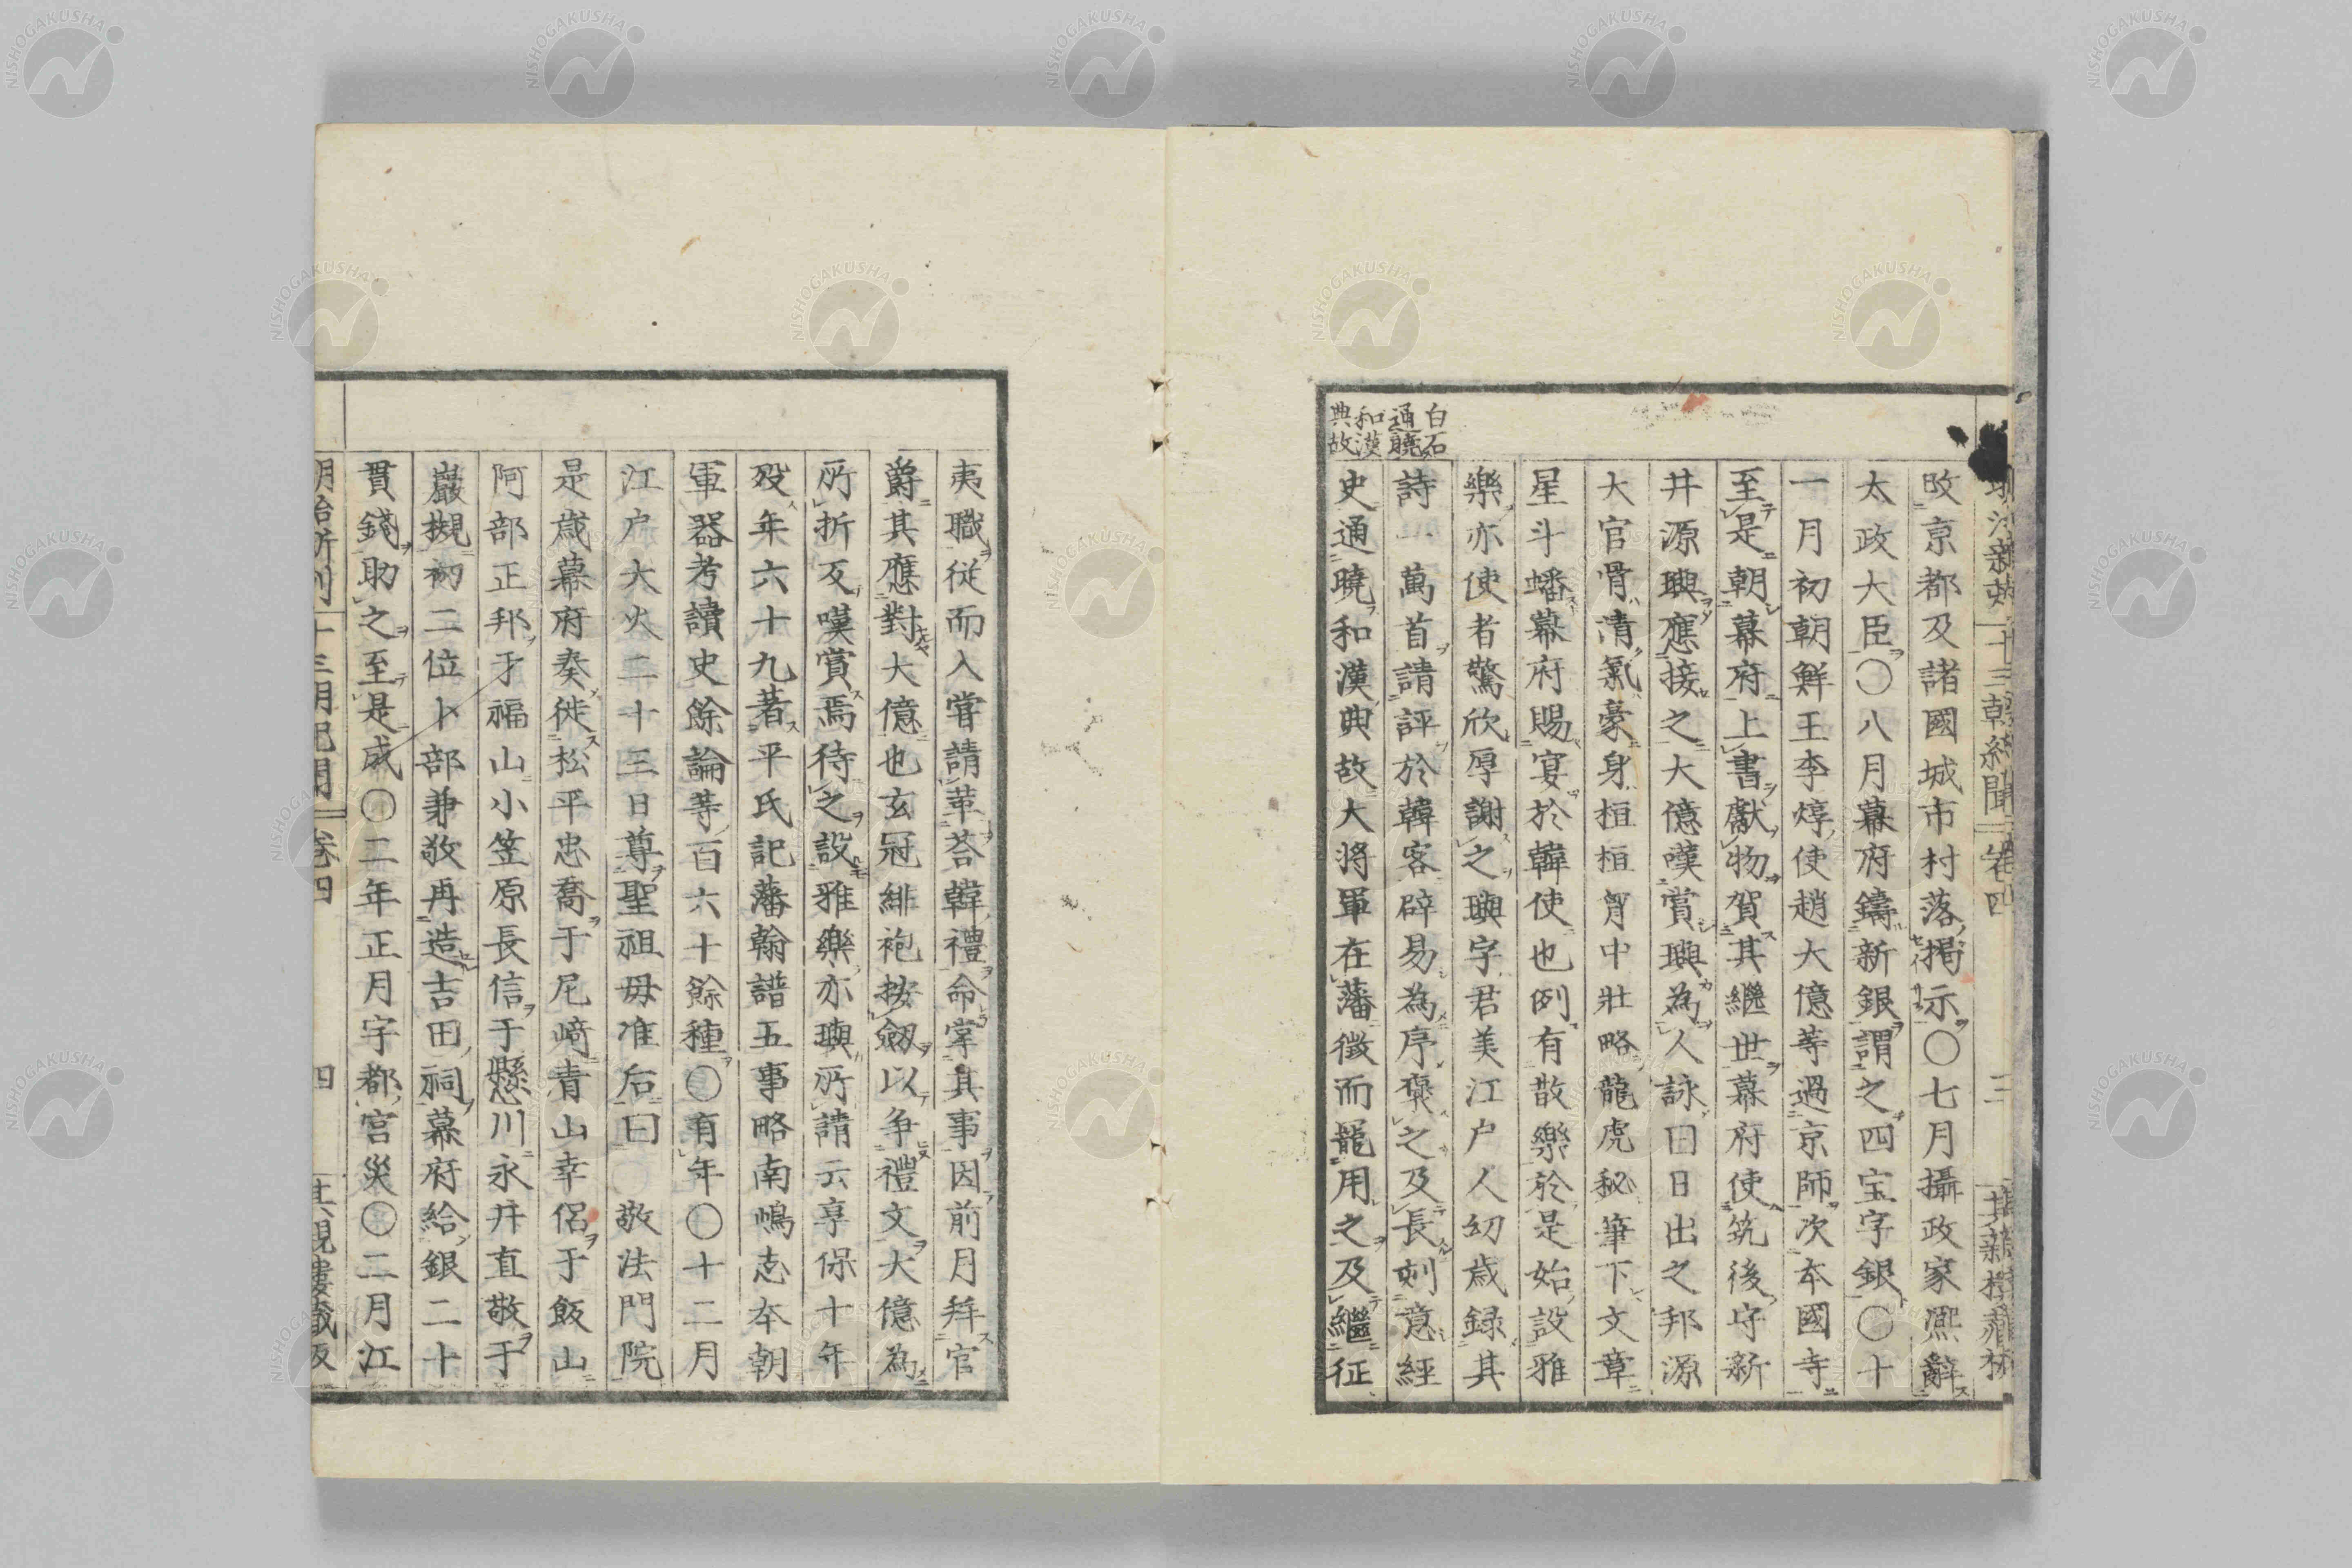 攺京都及諸國城市村落掲示〇七月攝政家凞辭
太政大臣〇八月幕府鑄新銀謂之四宝字銀〇十
一月初朝鮮王李焞使趙大億等過京師次本國寺
至是朝幕府上書獻物賀其繼世幕府使筑後守新
井源璵應接之大億嘆賞璵為人詠曰日出之邦源
大官骨清氣豪身桓桓胷中壯略龍虎秘筆下文章
星斗蟠幕府賜宴於韓使也例有散樂於是始設雅
樂亦使者驚欣厚謝之璵字君美江户人幼歳録其
白石
通曉
和漢
典故
詩一萬首請評於韓客辟易為序褒之及長刻意經
史通曉和漢典故大将軍在藩徴而龍用之及繼征
夷職従而入甞請革荅韓禮命掌其事因前月拜官
爵其應對大億也玄冠緋袍按劔以争禮文大億為
所折反嘆賞焉待之設雅樂亦璵所請云享保十年
歿年六十九著平氏記藩翰譜五事略南嶋志本朝
軍器考讀史餘論等百六十餘種〇有年〇十二月
江户大火二十三日尊聖祖母准后曰 敬法門院
是歳幕府奏徙松平忠喬于尼﨑青山幸侶于飯山
阿部正邦于福山小笠原長信于懸川永井直敬于
巖槻初二位卜部兼敬再造吉田祠幕府給銀二十
貫錢助之至是成〇二年正月宇都宮災〇二月江
四
NISHOGAKUSHA